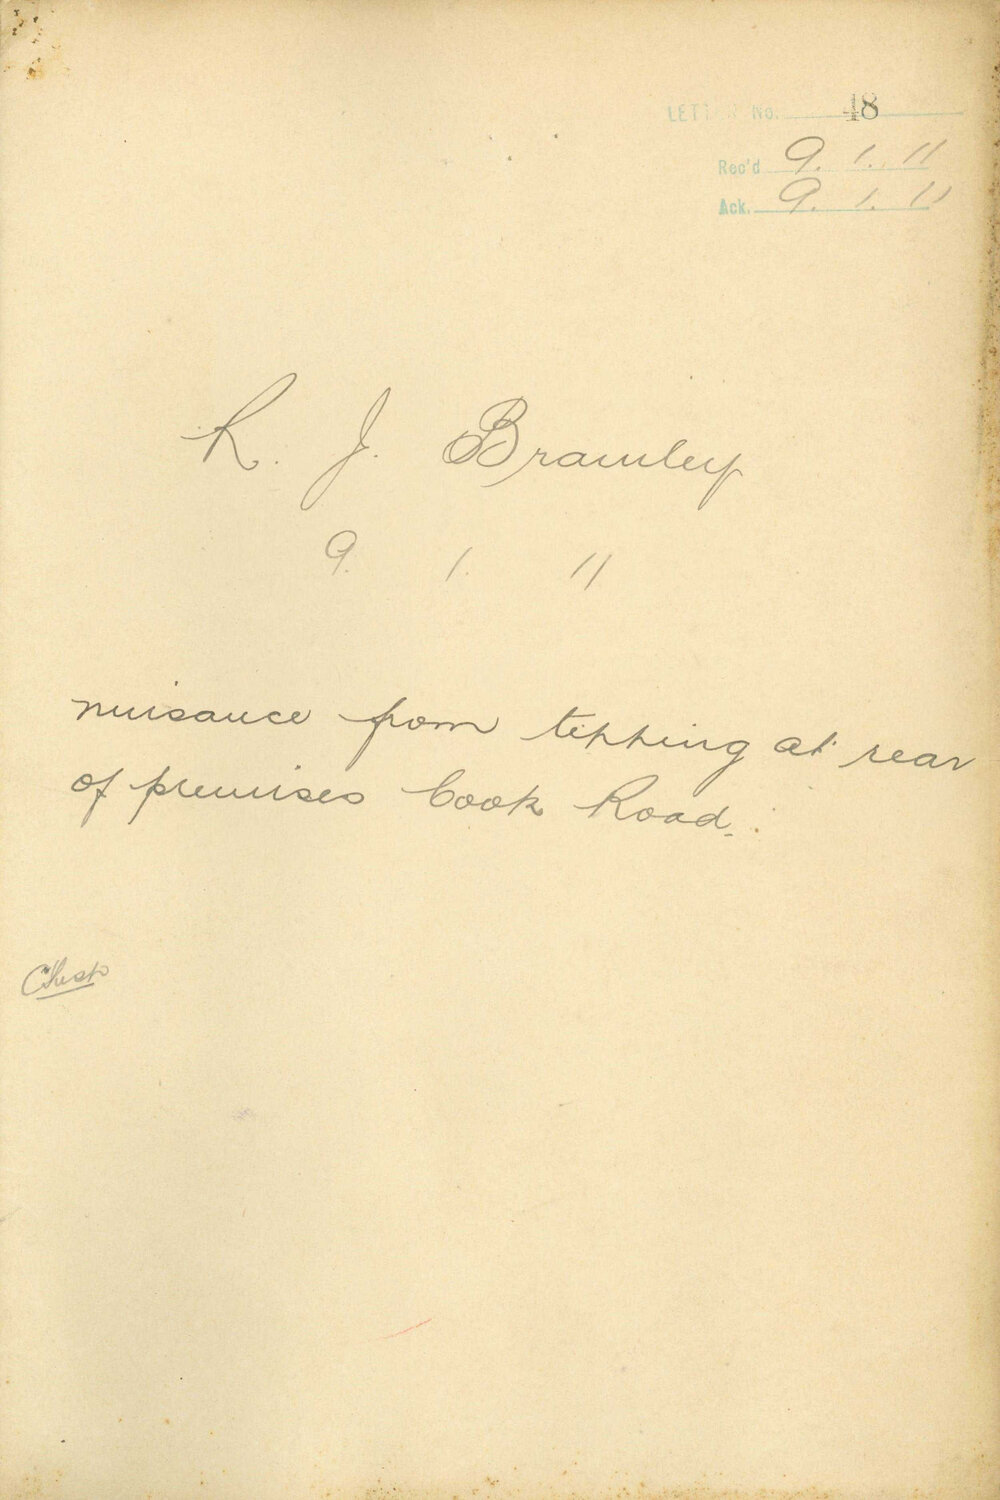 LETTER No. 48
Rec'd 9. 1. 11
Ack. 9. 1. 11
R. J. Bramley
9. 1. 11
nuisance from tipping at rear
of premises Cook Road.